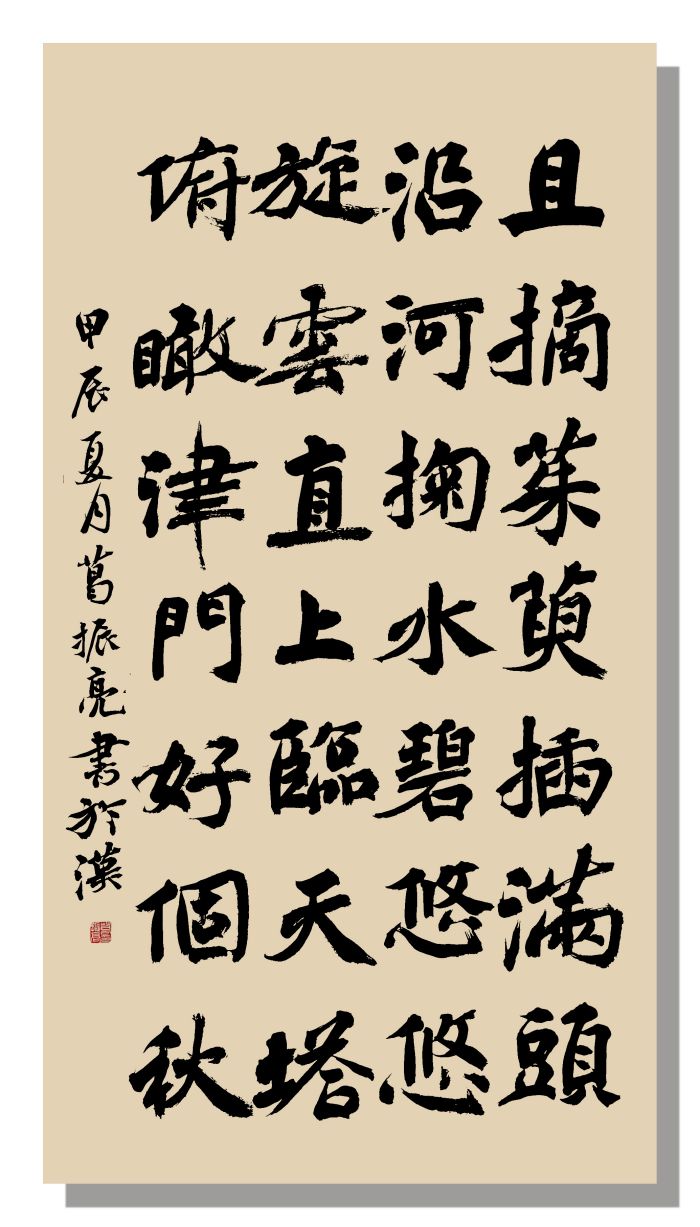 且摘茱萸插滿頭
沿河掬水碧悠悠
旋雲直上臨天塔
俯瞰津門好個秋
甲辰夏月葛振亮書於漢